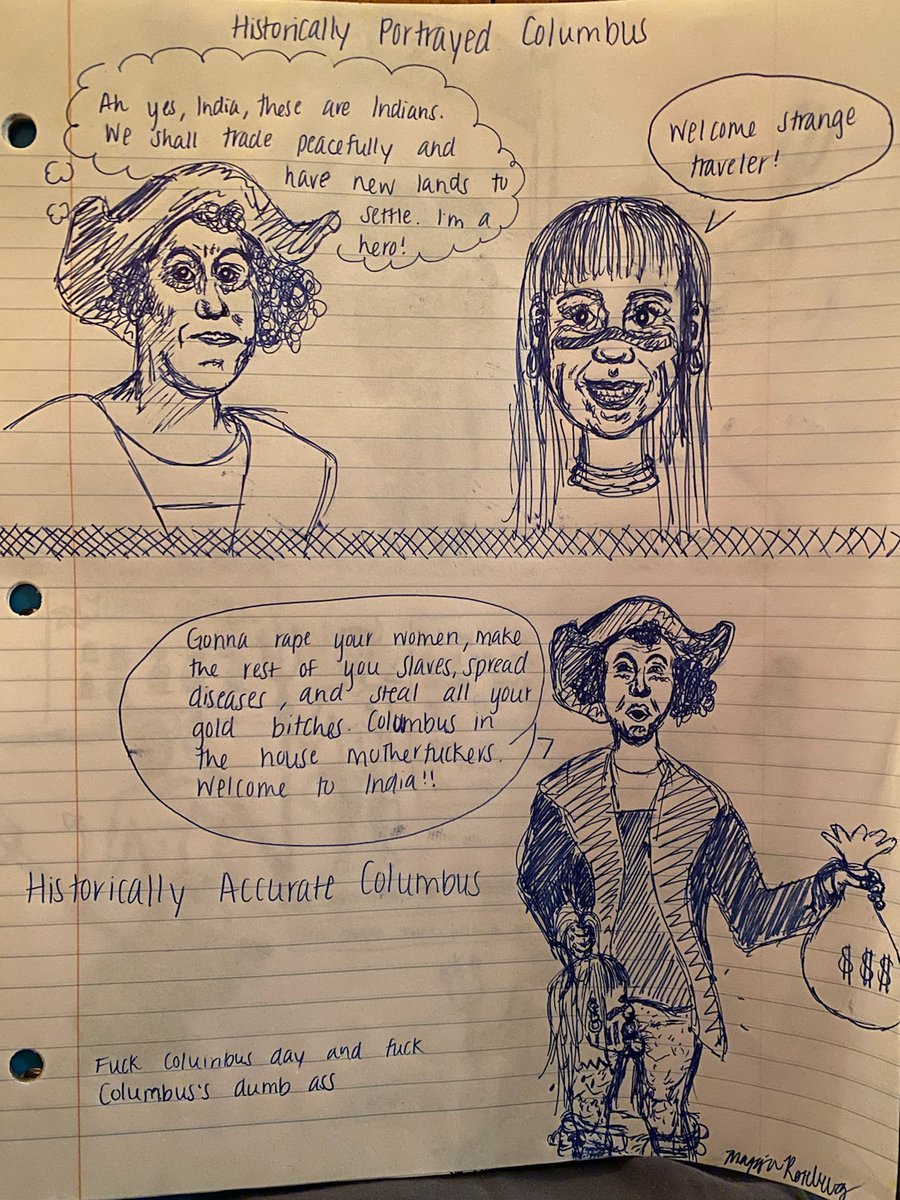 Historically Portrayed Columbus
Ah yes, India, these are Indians.
We shall trade peacefully and
have new lands to
settle. I'm a
hero!
Welcome strange
traveler!
Gonna rape your women, make
the rest of you slaves, spread
diseases, and steal all your
gold bitches. Columbus in
the house motherfuckers.
Welcome to India!!
Historically Accurate Columbus
$$$
Fuck Columbus day and fuck
Columbus's dumb ass